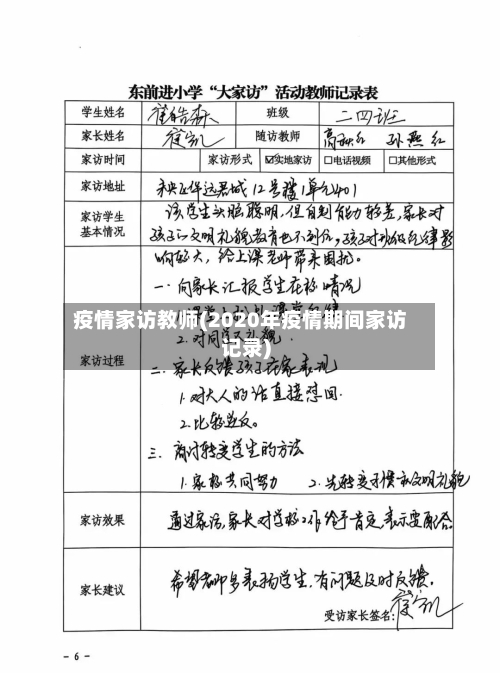 东前进小学“大家访”活动教师记录表
学生姓名 崔皓森 班级 二四班
家长姓名 崔凯 随访教师 高秋红 孙燕红
家访时间 家访形式 ☑实地家访 □电话视频 □其他形式
家访地址 12号楼1单元401
家访学生
基本情况
该学生头脑聪明,但自制能力较差,家长对
孩子的文明礼貌教育也不到位,孩子对班级纪律影
响较大,给上课老师带来困扰。
家访过程
一.向家长汇报学生在校情况
疫情家访教师(2020年疫情期间家访
记录)
2.对同学不礼貌
二.家长反馈孩子在家表现
1.对大人的话直接怼回.
2.比较逆反。
三.商讨转变学生的方法
1.家校共同努力 2.先转变习惯和文明礼貌
家访效果
通过家访,家长对学校工作给予肯定,表示要配合
家长建议
希望老师多表扬学生,有问题及时反馈.
受访家长签名: 崔凯
- 6 -